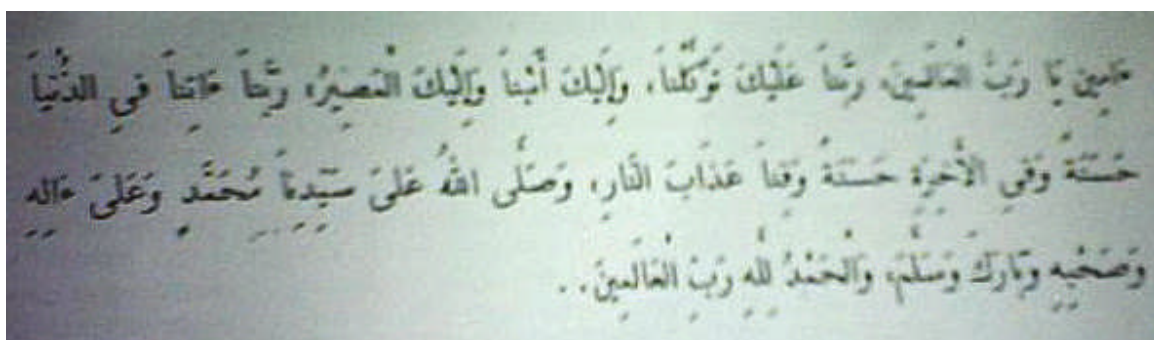 ءَامِين يَا رَبَّ الْعَالَمِينَ، رَبَّنَا عَلَيْكَ تَوَكَّلْنَا، وَإِلَيْكَ أَنَبْنَا وَإِلَيْكَ الْمَصِيرُ، رَبَّنَا ءَاتِنَا فِي الدُّنْيَا
حَسَنَةً وَفِي الْأَخِرَةِ حَسَنَةً وَقِنَا عَذَابَ النَّارِ، وَصَلَّى اللهُ عَلَىَ سَيِّدِنَا مُحَمَّدٍ وَعَلَىَ ءَالِهِ
وَصَحْبِهِ وَبَارَكَ وَسَلَّمَ، وَالْحَمْدُ لِلَّهِ رَبِّ الْعَالَمِينَ. .